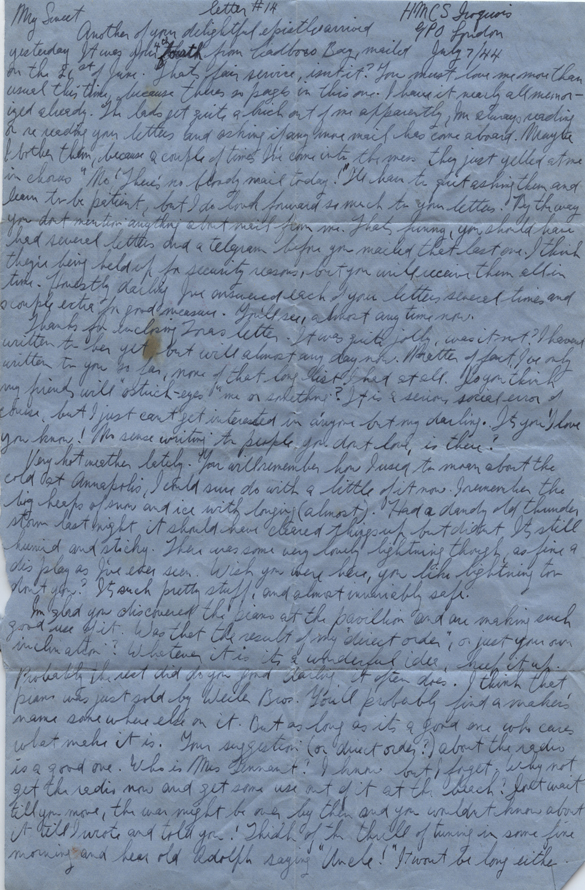 My Sweet letter #14 HMCS Iroquois
Another of your delightful epistles arrived GPO London
yesterday. It was your fourth from Cadboro Bay, mailed July 7/44
on the 26th of June. That's fair service, isn't it? You must love me more than
usual this time, because there's six pages in this one. I have it nearly all memor-
ized already. The lads get quite a kick out of me apparently, I'm always reading
or re reading your letters and asking if any more mail has come aboard. Maybe
I bother them, because a couple of times I've come into the mess they just yelled at me
in chorus "No! There's no bloody mail today!" I'll have to quit asking them and
learn to be patient, but I do look forward so much to your letters. By the way
you don't mention anything about mail from me. That's funny, you should have
had several letters and a telegram before you mailed that last one. I think
they're being held up for security reasons, but you will receive them all in
time. Honestly darling I've answered each of your letters several times and
a couple extra for good measure. You'll see, almost any time now.
Thanks for enclosing letter. It was quite jolly, was it not? I haven't
written to her yet, but will almost any day now. Matter of fact I've only
written to you so far, none of that long list I had at all. Do you think
my friends will "ostrich-eyes" me or something? It is a serious social error of
course, but I just can't get interested in anyone but my darling. It's you I love
you know! No sense writing to people you don't love, is there?
Very hot weather lately. You will remember how I used to moan about the
cold at Annapolis, I could sure do with a little of it now. I remember the
big heaps of snow and ice with longing (almost). Had a dandy old thunder
storm last night it should have cleared things up, but didn't. It's still
humid and sticky. There was some very lovely lightning though, as fine a
display as I've ever seen. Wish you were here, you like lightning too
don't you? It's such pretty stuff, and almost invariably safe.
I'm glad you discovered the piano at the pavilion and are making such
good use of it. Was that the result of my "direct order", or just your own
inclination? Whatever it is it's a wonderful idea, keep it up.
Probably the rest did do you good darling, it often does. I think that
piano was just sold by Weiler Bros. You'll probably find a maker's
name some where else on it. But as long as it's a good one who cares
what make it is. Your suggestion (or direct order?) about the radio
is a good one. Who is Mrs Tennent? I know but I forget. Why not
get the radio now and get some use out of it at the beach? Don't wait
till you move, the war might be over by then and you wouldn't know about
it till I wrote and told you! Think of the thrill of tuning in some fine
morning and hear old Adolph saying "Uncle!" It won't be long either.